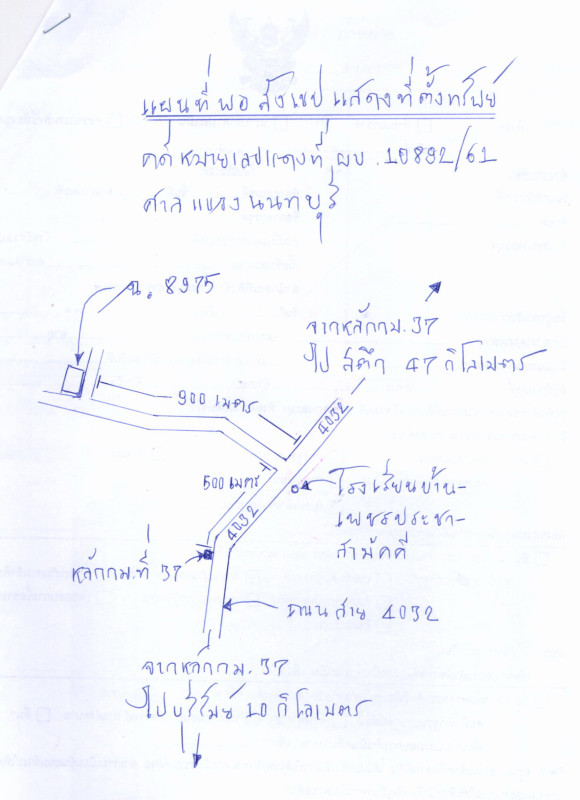 แผนที่พอสังเขปแสดงที่ตั้งทรัพย์
คดีหมายเลขแดงที่ ผบ. 10892/61
ศาลแขวงนนทบุรี
ฉ. 8975
จากหลักกม. 37
ไป สตึก 47 กิโลเมตร
900 เมตร
4032
500 เมตร
โรงเรียนบ้าน-
เพชรประชา-
สามัคคี
4032
หลักกม.ที่ 37
ถนนสาย 4032
จากหลักกม. 37
ไปบุรีรัมย์ 20 กิโลเมตร